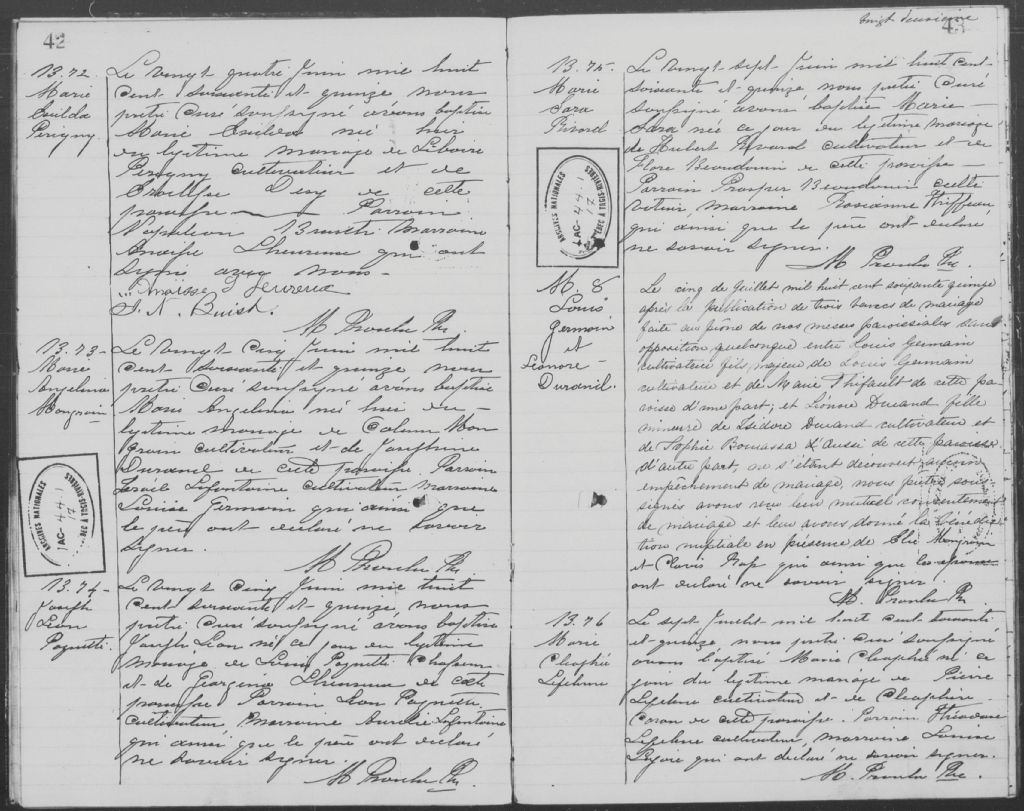 42
B.72
Marie
Perigny
Le vingt quatre Juin mil huit
cent soixante et quinze nous
prêtre curé soussigné avons baptisé
Marie née hier
du légitime mariage de Liboire
Perigny cultivateur et de
Dery de cette
paroisse Parrain
Napoleon Marraine
Lheureux qui ont
signé avec nous
J. N. Buist.
M Proulx Ptr.
B.73
Marie
Angelina
Mongrain
Le vingt cinq Juin mil huit
cent soixante et quinze nous
prêtre curé soussigné avons baptisé
Marie Angelina née hier du
légitime mariage de Calum Mon
grain cultivateur et de Josephine
Durand de cette paroisse Parrain
Israël Lafontaine cultivateur Marraine
Louise Germain qui ainsi que
le père ont déclaré ne savoir
signer.
M Proulx Ptr
ARCHIVES NATIONALES
AC-44-1
17
B.74
Joseph
Léon
Paquette
Le vingt cinq Juin mil huit
cent soixante et quinze, nous
prêtre curé soussigné avons baptisé
Joseph Léon né ce jour du légitime
mariage de Louis Paquette
et de Georgina Lheureux de cette
paroisse Parrain Léon Paquette
cultivateur Marraine Aurélie Lafontaine
qui ainsi que le père ont déclaré
ne savoir signer.
M Proulx Ptr
vingt deuxième
43
B.75
Marie
Sara
Rivard
Le vingt sept Juin mil huit cent
soixante et quinze nous prêtre curé
soussigné avons baptisé Marie
Sara née ce jour du légitime mariage
de Hubert Rivard cultivateur et de
Flore Beaudouin de cette paroisse
Parrain Prosper Beaudouin culti
vateur, marraine Roseanne Thiffeau
qui ainsi que le père ont déclaré
ne savoir signer.
M Proulx Ptr.
ARCHIVES NATIONALES
AC-44-1
17
M. 8
Louis
Germain
et
Léonore
Durand.
Le cinq de Juillet mil huit cent soixante quinze
après la publication de trois bancs de mariage
faite au prône de nos messes paroissiales sans
opposition quelconque entre Louis Germain
cultivateur fils majeur de Louis Germain
cultivateur et de Marie Thifault de cette pa-
roisse d'une part; et Léonore Durand fille
mineure de Isidore Durand cultivateur et
de Sophie Bourassa d'aussi de cette paroisse
d'autre part, ne s'étant découvert aucun
empêchement de mariage, nous prêtre sous-
signés avons reçu leur mutuel consentement
de mariage et leur avons donné la bénédic
tion nuptiale en présence de Elie Mongrain
et Clovis qui ainsi que les époux
ont déclaré ne savoir signer.
M. Proulx Ptr
B.76
Marie
Cléophée
Lefebvre
Le sept Juillet mil huit cent soixante
et quinze, nous prêtre curé soussigné
avons baptisé Marie Cléophé né ce
jour du légitime mariage de Pierre
Lefebvre cultivateur et de Cleophire
de cette paroisse. Parrain Théodore
Lefebvre cultivateur, marraine Louise
qui ont déclaré ne savoir signer.
M. Proulx Ptr